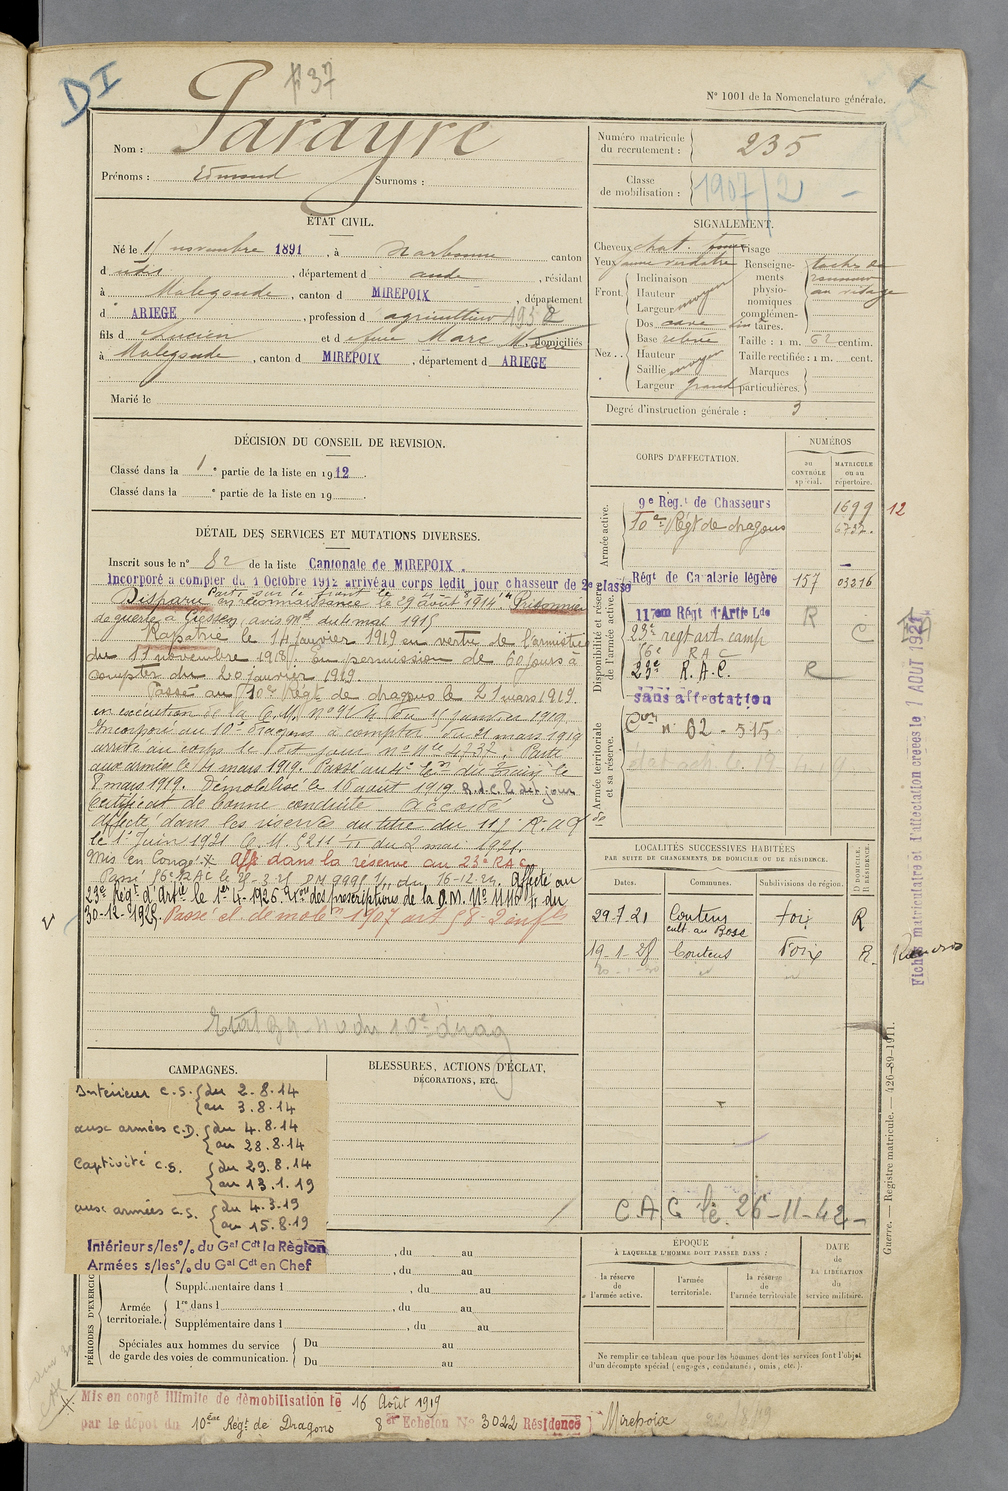 DI
N° 1001 de la Nomenclature générale.
Nom : Parayre
Prénoms : Edmond Surnoms :
Numéro matricule du recrutement : 235
Classe de mobilisation : 1907/2
ÉTAT CIVIL.
Né le 11 novembre 1891, à Narbonne canton
d udit, département d aude, résidant
à Malegoude, canton d MIREPOIX, département
d ARIEGE, profession d agriculteur
fils d Lucien et d Marc Marie domiciliés
à Malegoude, canton d MIREPOIX, département d ARIEGE
Marié le
SIGNALEMENT.
Cheveux chat. Visage
Yeux jaune verdâtre
Front Inclinaison
Hauteur moyen
Largeur
Nez Dos cave
Base relevée
Hauteur moyen
Saillie
Largeur grand
Renseignements physionomiques complémentaires. taches de rousseur au visage
Taille : 1 m. 62 centim.
Taille rectifiée : 1 m. cent.
Marques particulières.
Degré d'instruction générale : 3
DÉCISION DU CONSEIL DE REVISION.
Classé dans la 1e partie de la liste en 1912.
Classé dans la e partie de la liste en 19
DÉTAIL DES SERVICES ET MUTATIONS DIVERSES.
Inscrit sous le n° 82 de la liste Cantonale de MIREPOIX.
Incorporé à compter du 1 Octobre 1912 arrivé au corps ledit jour chasseur de 2e classe
Parti sur le front le
Disparu en reconnaissance le 29 août 1914. Prisonnier
de guerre à Giessen, avis du 4 mai 1915
Rapatrié le 14 janvier 1919 en vertu de l'armistice
du 11 novembre 1918. En permission de 60 jours à
compter du 20 janvier 1919.
Passé au 10e Régt de dragons le 21 mars 1919.
en exécution de la C.M. du 15 janvier 1919
Incorporé au 10e Dragons à compter du 21 mars 1919
arrivé au corps le dit jour n° Mle 4232. Parti
aux armées le 4 mars 1919. Passé au du Train le
8 mars 1919. Démobilisé le 16 août 1919 R.d.C. le dit jour
Certificat de bonne conduite accordé
Affecté dans les réserves au titre du 117 R.A.L
le 1er Juin 1921 C.M. du 2 mai 1921.
Mis en Congé. Aff. dans la réserve au 23e RAC
Passé 56e RAC le du 16-12-24. Affecté au
23e Régt d'Artie le 1er-4-1926. des prescriptions de la D.M. N° 11116 du
30-12-1925. Passé cl. de mobon 1907 art 58. 2 enfts
du 10e drag
CORPS D'AFFECTATION.
NUMÉROS
DU CONTRÔLE spécial.
MATRICULE ou au répertoire.
Armée active.
9e Régt de Chasseurs 1699 12
10e Régt de dragons 6732.
Disponibilité et réserve de l'armée active.
Régt de Cavalerie légère 157 03216
117em Régt d'Artie Lde R
23e regt art. camp C
56e RAC
23e R.A.C. R
sans affectation
Armée territoriale et sa réserve.
Con n° 62 - 515
Fiches matriculaire et d'affectation créées le 1 AOUT 1921
LOCALITÉS SUCCESSIVES HABITÉES
PAR SUITE DE CHANGEMENTS DE DOMICILE OU DE RÉSIDENCE.
Dates. Communes. Subdivisions de région. D DOMICILE. R RÉSIDENCE.
29.7.21 Coutens Foix R
cult. au Bosc
19-1-28 Coutens Foix R.
CAMPAGNES.
Intérieur C.S. du 2-8-14
au 3.8.14
aux armées C.D. du 4.8.14
au 28.8.14
Captivité C.S. du 29.8.14
au 13.1.19
aux armées C.S. du 4.3.19
au 15.8.19
Intérieur s/les % du Gal Cdt la Région
Armées s/les % du Gal Cdt en Chef
BLESSURES, ACTIONS D'ÉCLAT,
DÉCORATIONS, ETC.
C.A.C. le 26-11-42
PÉRIODES D'EXERCICE
, du au
, du au
Supplémentaire dans l , du au
Armée territoriale. 1re dans l , du au
Supplémentaire dans l , du au
Spéciales aux hommes du service de garde des voies de communication. Du au
Du au
ÉPOQUE
À LAQUELLE L'HOMME DOIT PASSER DANS :
la réserve de l'armée active.
l'armée territoriale.
la réserve de l'armée territoriale
DATE de LA LIBÉRATION du service militaire.
Ne remplir ce tableau que pour les hommes dont les services font l'objet
d'un décompte spécial (engagés, condamnés, omis, etc.).
Guerre. — Registre matricule. — 426-89-1911.
Mis en congé illimité de démobilisation le 16 Août 1919
par le dépôt du 10ème Régt de Dragons 8e Echelon No 3022 Résidence Mirepoix